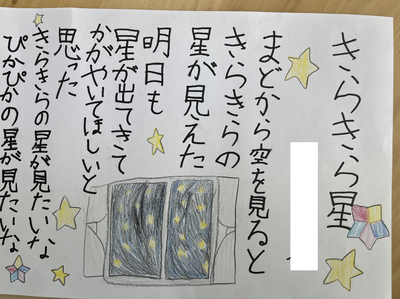 きらきら星
まどから空を見ると
きらきらの
星が見えた
明日も
星が出てきて
かがやいてほしいと
思った
きらきらの星が見たいな
ぴかぴかの星が見たいな